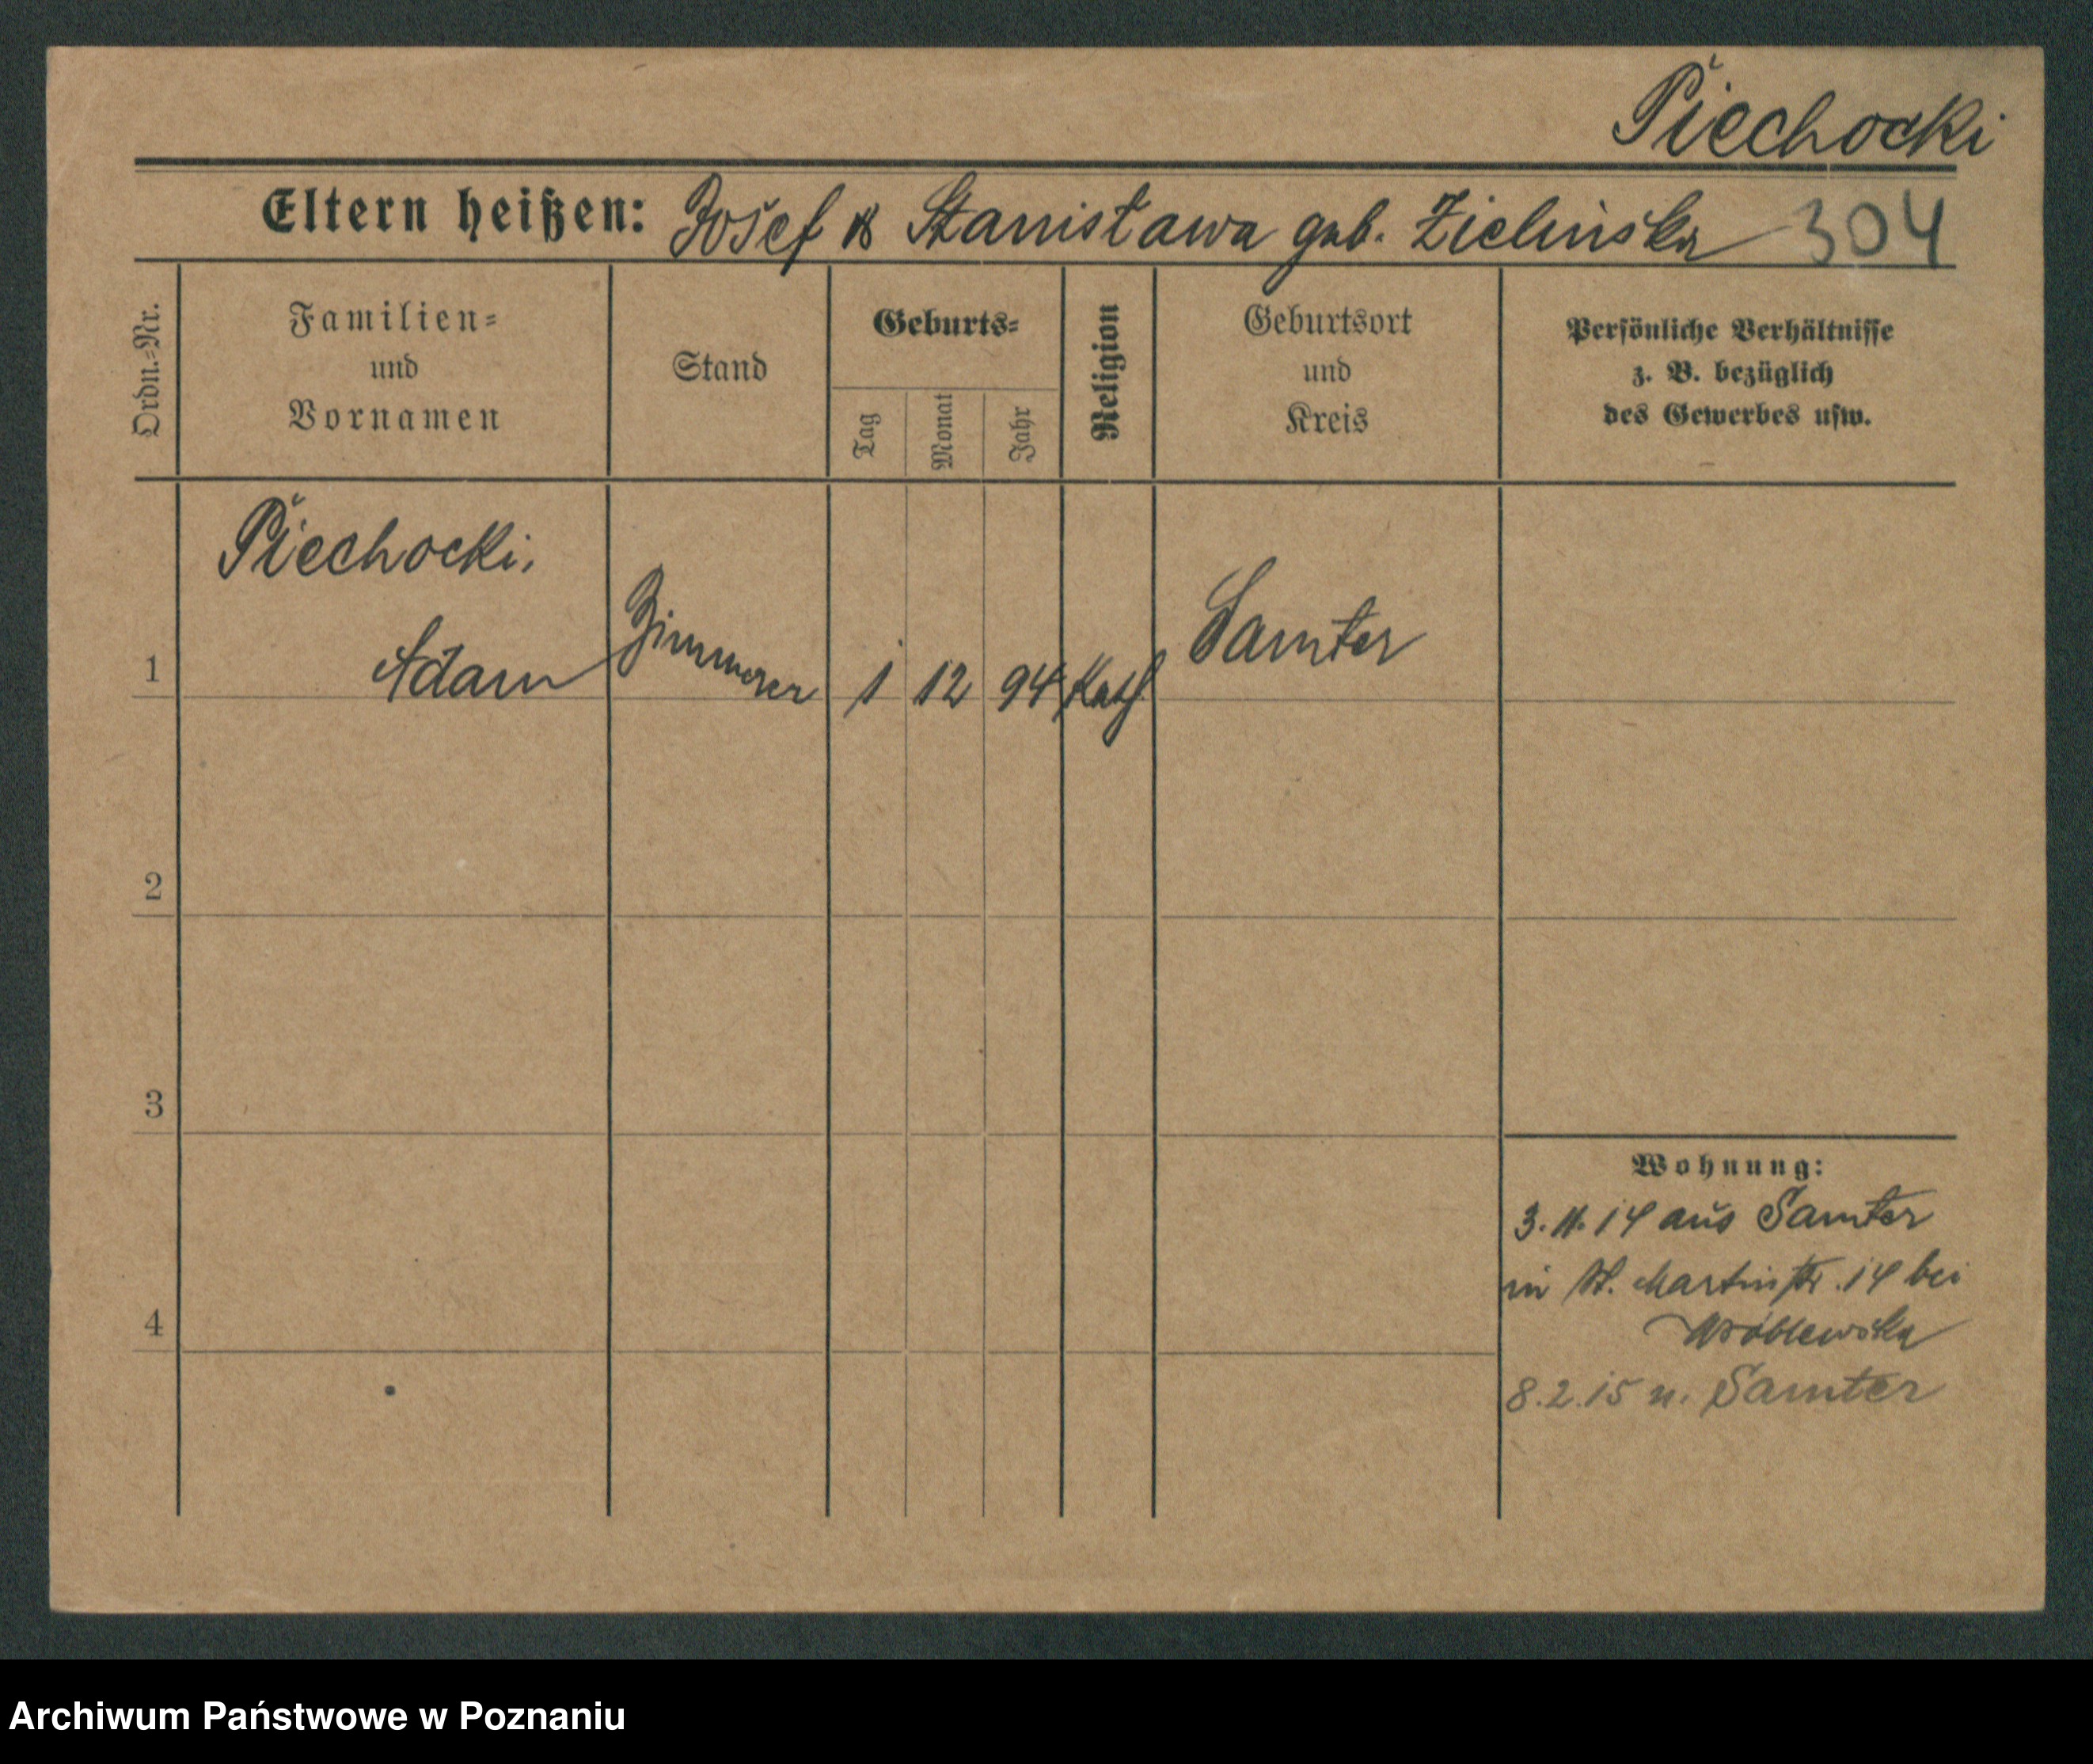 Piechocki
Eltern heißen: Josef & Stanislawa geb. Zielinska 304
Ordn.=Nr.
Familien=
und
Vornamen
Stand
Geburts=
Tag
Monat
Jahr
Religion
Geburtsort
und
Kreis
Persönliche Verhältnisse
z. B. bezüglich
des Gewerbes usw.
1
Piechocki,
Adam
Zimmerer
1 12 94 Kath
Samter
2
3
4
Wohnung:
3. 11. 14 aus Samter
in St. Martinstr. 14 bei
Wróblewska
8.2.15 n. Samter
Archiwum Państwowe w Poznaniu